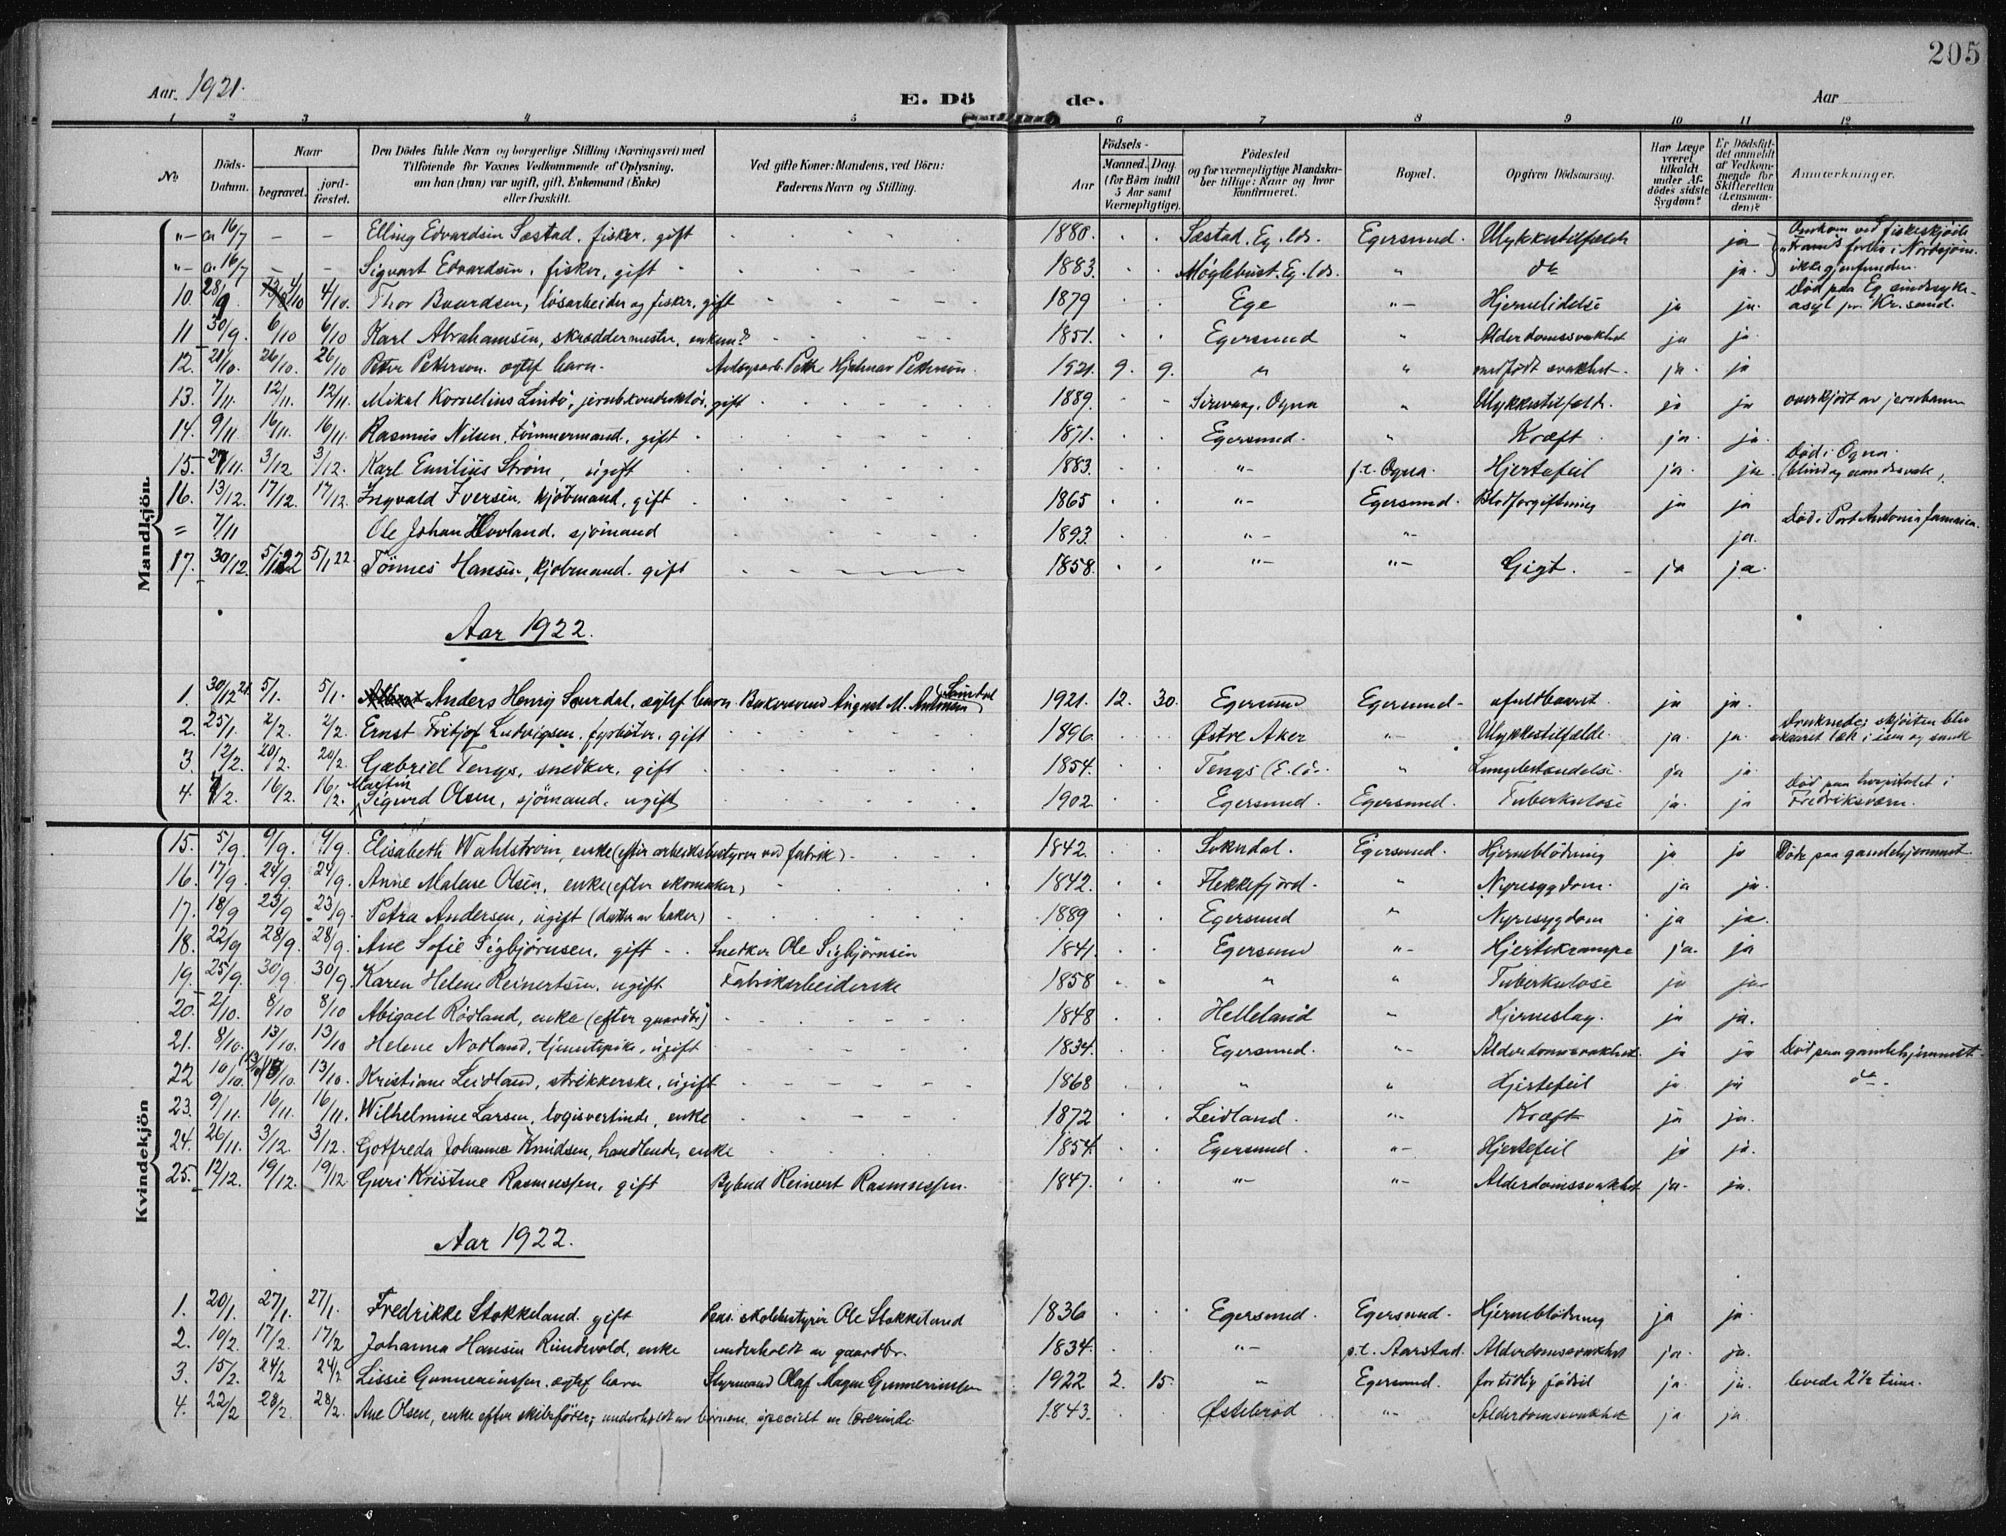 205
Aar 1921.
E. Döde.
Aar
1 2 3 4 5 6 7 8 9 10 11 12
No.
Döds-Datum.
Naar
begravet.
jord-fæstet.
Den Dödes fulde Navn og borgerlige Stilling (Næringsvei) med Tilföiende for Voxnes Vedkommende af Oplysning, om han (hun) var ugift, gift, Enkemand (Enke) eller fraskilt.
Ved gifte Koner: Mandens, ved Börn: Faderens Navn og Stilling.
Födsels-
Aar
Maaned. Dag.
(for Börn indtil 5 Aar samt Værnepligtige).
Födested og for værnepligtige Mandskaber tillige: Naar og hvor konfirmeret.
Bopæl.
Opgiven Dödsaarsag.
Har Læge været tilkaldt under Afdödes sidste Sygdom?
Er Dödsfaldet anmeldt af Vedkommende for Skifteretten (Lensmanden)?
Anmærkninger.
Mandkjön.
"- ca 16/7 - - Elling Edvardsen Sæstad, fisker, gift 1880. Sæstad, Eg. lds. Egersund. Ulykkestilfælde ja Omkom ved fiskeskjöite
"- ca 16/7 - - Sigvart Edvardsen, fisker, gift 1883. Møglebust, Eg. lds. " do ja. forlis i Nordsjøen. ikke gjenfunden.
10. 28/9 4/10 4/10. Thor Baardsen, løsarbeider og fisker, gift 1879 Ege "- Hjernelidelse ja ja. Död paa Eg sindssyke-asyl pr. Kr.sand.
11 30/9. 6/10 6/10 Karl Abrahamsen, skræddermester, enkem? 1851. Egersund " Alderdomssvakhet ja ja.
12. 21/10. 26/10. 26/10 Peter Petterson, ægtef barn. Hjalmar Petterson. 1921. 9. 9. " " medfödt svakhet. ja. ja
13. 7/11. 12/11. 12/11. Mikal Kornelius Lindö, jernbkonduktör, gift 1889. Sirevaag, Ogna " Ulykkestilfælde. ja ja overkjört av jernbanen
14. 9/11 16/11. 16/11. Rasmus Nilsen, tömmermand, gift 1871. Egersund. " Kræft. ja. ja.
15. 27/11. 3/12 3/12. Karl Emilius Ström, ugift 1883. "- p.t. Ogna. Hjertefeil ja. ja Död i Ogna. (blind og aandssvak).
16. 13/12. 17/12. 17/12. Ingvald Iversen, kjöbmand, gift 1865 "- Egersund. Blodforgiftning ja ja
= 7/11 Ole Johan Hovland. sjömand 1893. "- "- ja. Död i Port Antonio Jamaica.
17. 30/12. 5/1 22 5/1 22 Tönnes Hansen, kjöbmand. gift 1858. "- "- Gigt. ja ja.
Aar 1922.
1. 30/12 21. 5/1. 5/1. Anders Henry Saurdal, ægtef barn. August M. 1921. 12. 30. Egersund Egersund- ufuldbaaret ja ja.
2. 25/1. 2/2. 2/2. Ernst Fritjof Ludvigsen, fyrböter, gift 1896. Østre Aker "- Ulykkestilfælde. ja. ja. Druknede; skjöiten blev skaaret læk i isen og sank
3. 12/2. 20/2. 20/2. Gabriel Tengs, snedker, gift 1854. Tengs (E. lds. " Lungebetændelse ja ja
4. 9/2. 16/2. 16/2. Martin Sigurd Olsen, sjömand, ugift 1902. Egersund. Egersund. Tuberkulose ja. ja Död paa hospitalet i Fredriksværn.
Kvindekjön
15. 5/9. 9/9. 9/9. Elisabeth Wahlström, enke (efter arbeidsbestyrer ved fabrik) 1842. Sokndal. Egersund. Hjerneblödning ja ja Döde paa gamlehjemmet.
16. 17/9. 24/9. 24/9. Anne Malene Olsen, enke (efter skomaker) 1842. Flekkefjord. " Nyresygdom. ja ja.
17. 18/9 23/9 23/9. Petra Andersen, ugift (datter av baker) 1889 Egersund " Nyresygdom ja ja.
18. 22/9 28/9. 28/9. Ane Sofie Sigbjørnsen, gift Snedker Ole Sigbjörnsen 1841. Egersund "- Hjertekrampe ja. ja
19. 25/9. 30/9. 30/9 Karen Helene Reinertsen, ugift Fabrikarbeiderske 1858 " " Tuberkulose ja ja
20. 2/10. 8/10 8/10 Abigael Rödland, enke (efter gaardbr) 1848 Helleland " Hjerneslag. ja ja.
21. 8/10. 13/10. 13/10 Helene Nodland, tjenestepike, ugift 1834. Egersund. "- Alderdomssvakhet. ja ja Död paa gamlehjemmet.
22 10/10. 13/10. 13/10. Kristiane Leidland, strikkerske, ugift 1868 " " Hjertefeil ja ja do-
23. 9/11. 16/11. 16/11. Wilhelmine Larsen, logisvertinde, enke 1872 Leidland. "- Kræft ja ja.
24. 26/11. 3/12. 3/12. Gotfreda Johanne Knudsen, handlende, enke 1854. Egersund. "- Hjertefeil ja ja.
25. 12/12. 19/12. 19/12 Guri Kristine Rasmussen, gift Bybud Reinert Rasmussen. 1847. "- "- Alderdomssvakhet ja. ja.
Aar 1922.
1. 20/1. 27/1. 27/1. Fredrikke Stokkeland gift Pens. skolebestyrer Ole Stokkeland 1836 Egersund. Egersund. Hjerneblödning ja ja.
2. 10/2. 17/2. 17/2 Johanna Hansen Rundevold, enke underholdt av gaardbr. 1834. "- p.t. Aarstad. Alderdomssvakhet ja. ja.
3. 15/2. 24/2 24/2 Lissie Gunneriussen, ægtef barn Styrmand Olaf Magne Gunneriussen 1922 2. 15. " Egersund. for tidlig födsel ja. ja. levede 2½ time.
4. 22/2 28/2. 28/2. Ane Olsen, enke efter skibsförer; underholdt av börnene, specielt en lærerinde 1843. Østebröd "- Alderdomssvakhet ja ja.